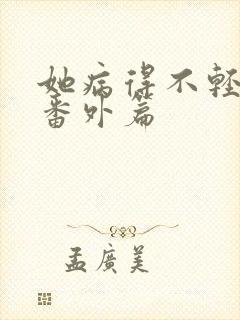 她病得不轻
番外篇
孟廣美